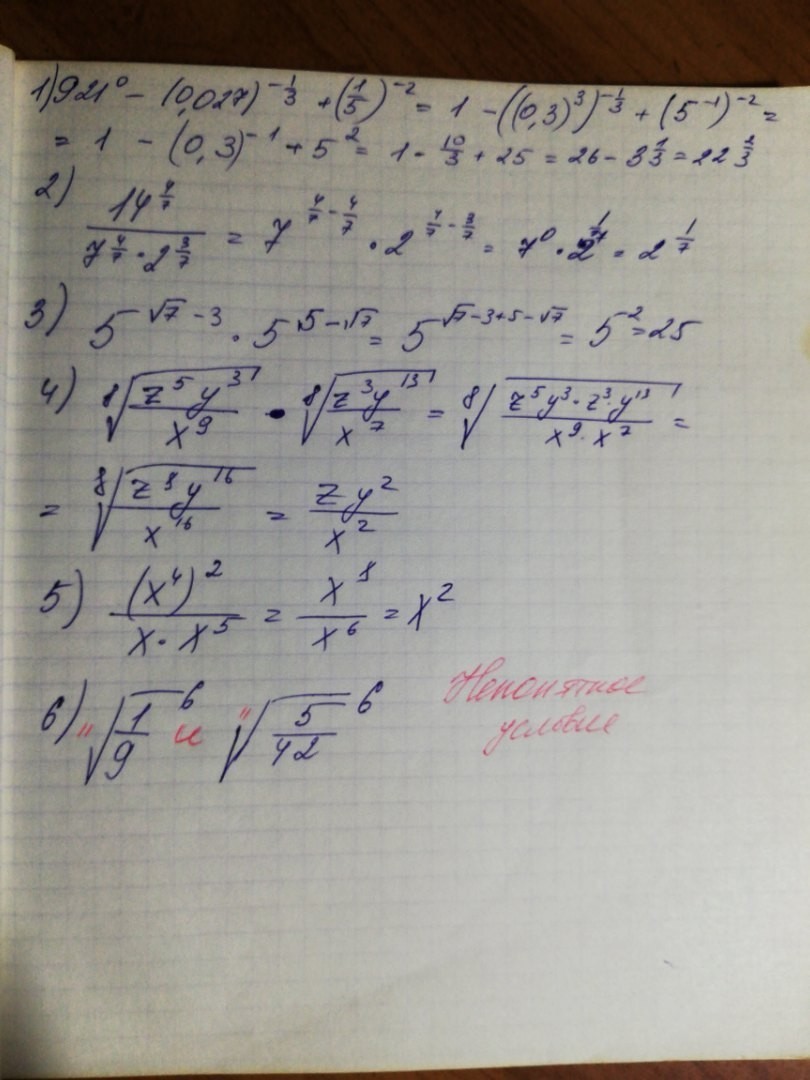 1) 921⁰ − (0,027)^(−1/3) + (1/5)^(−2) = 1 − ((0,3)³)^(−1/3) + (5^(−1))^(−2) =
= 1 − (0,3)^(−1) + 5² = 1 − 10/3 + 25 = 26 − 3 1/3 = 22 2/3
2) 14^(4/7) / (7^(4/7) · 2^(3/7)) = 7^(4/7 − 4/7) · 2^(4/7 − 3/7) = 7⁰ · 2^(1/7) = 2^(1/7)
3) 5^(√7 − 3) · 5^(5 − √7) = 5^(√7 − 3 + 5 − √7) = 5² = 25
4) ⁸√(z⁵y³ / x⁹) · ⁸√(z³y¹³ / x⁷) = ⁸√(z⁵y³ · z³ · y¹³ / x⁹ · x⁷) =
= ⁸√(z⁸y¹⁶ / x¹⁶) = zy² / x²
5) (x⁴)² / (x · x⁵) = x⁸ / x⁶ = x²
6) "√(1/9)⁶ и "√(5/42)⁶ Непонятное
условие